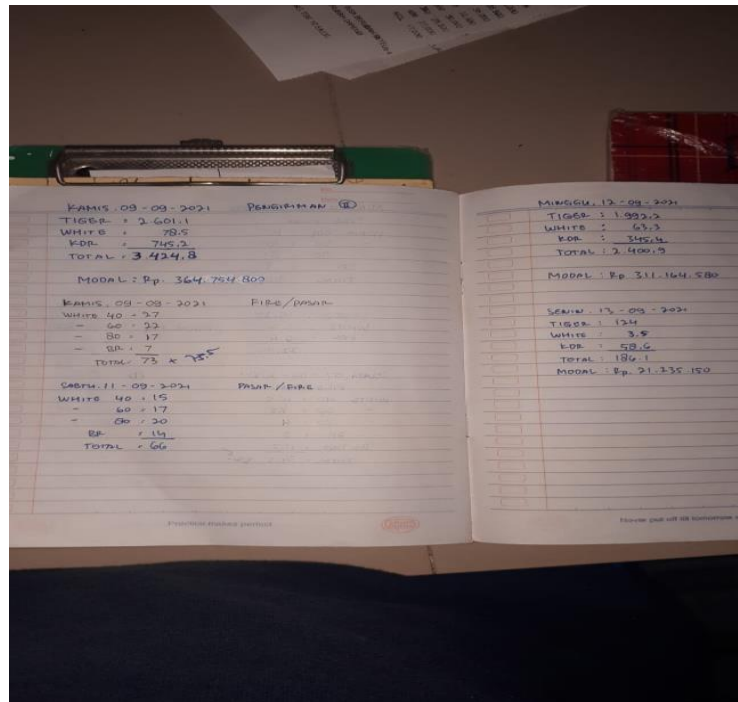 KAMIS. 09 - 09 - 2021 PENGIRIMAN II
TIGER : 2.601.1
WHITE : 78.5
KDR : 745.2
TOTAL : 3.424.8
MODAL : Rp. 364.754.802
KAMIS. 09 - 09 - 2021 FIRE/PASIR
WHITE 40 : 27
- 60 : 22
- 80 : 17
- BR : 7
TOTAL : 73 * 73.5
SABTU. 11 - 09 - 2021 PASIR / FIRE
WHITE 40 : 15
- 60 : 17
- 80 : 20
BR : 14
TOTAL : 66
Practice makes perfect
MINGGU. 12 - 09 - 2021
TIGER : 1.992.2
WHITE : 63.3
KDR : 345.4
TOTAL : 2.400.9
MODAL : Rp. 311.164.580
SENIN. 13 - 09 - 2021
TIGER : 124
WHITE : 3.5
KDR : 58.6
TOTAL : 186.1
MODAL : Rp. 21.235.150
Never put off till tomorrow